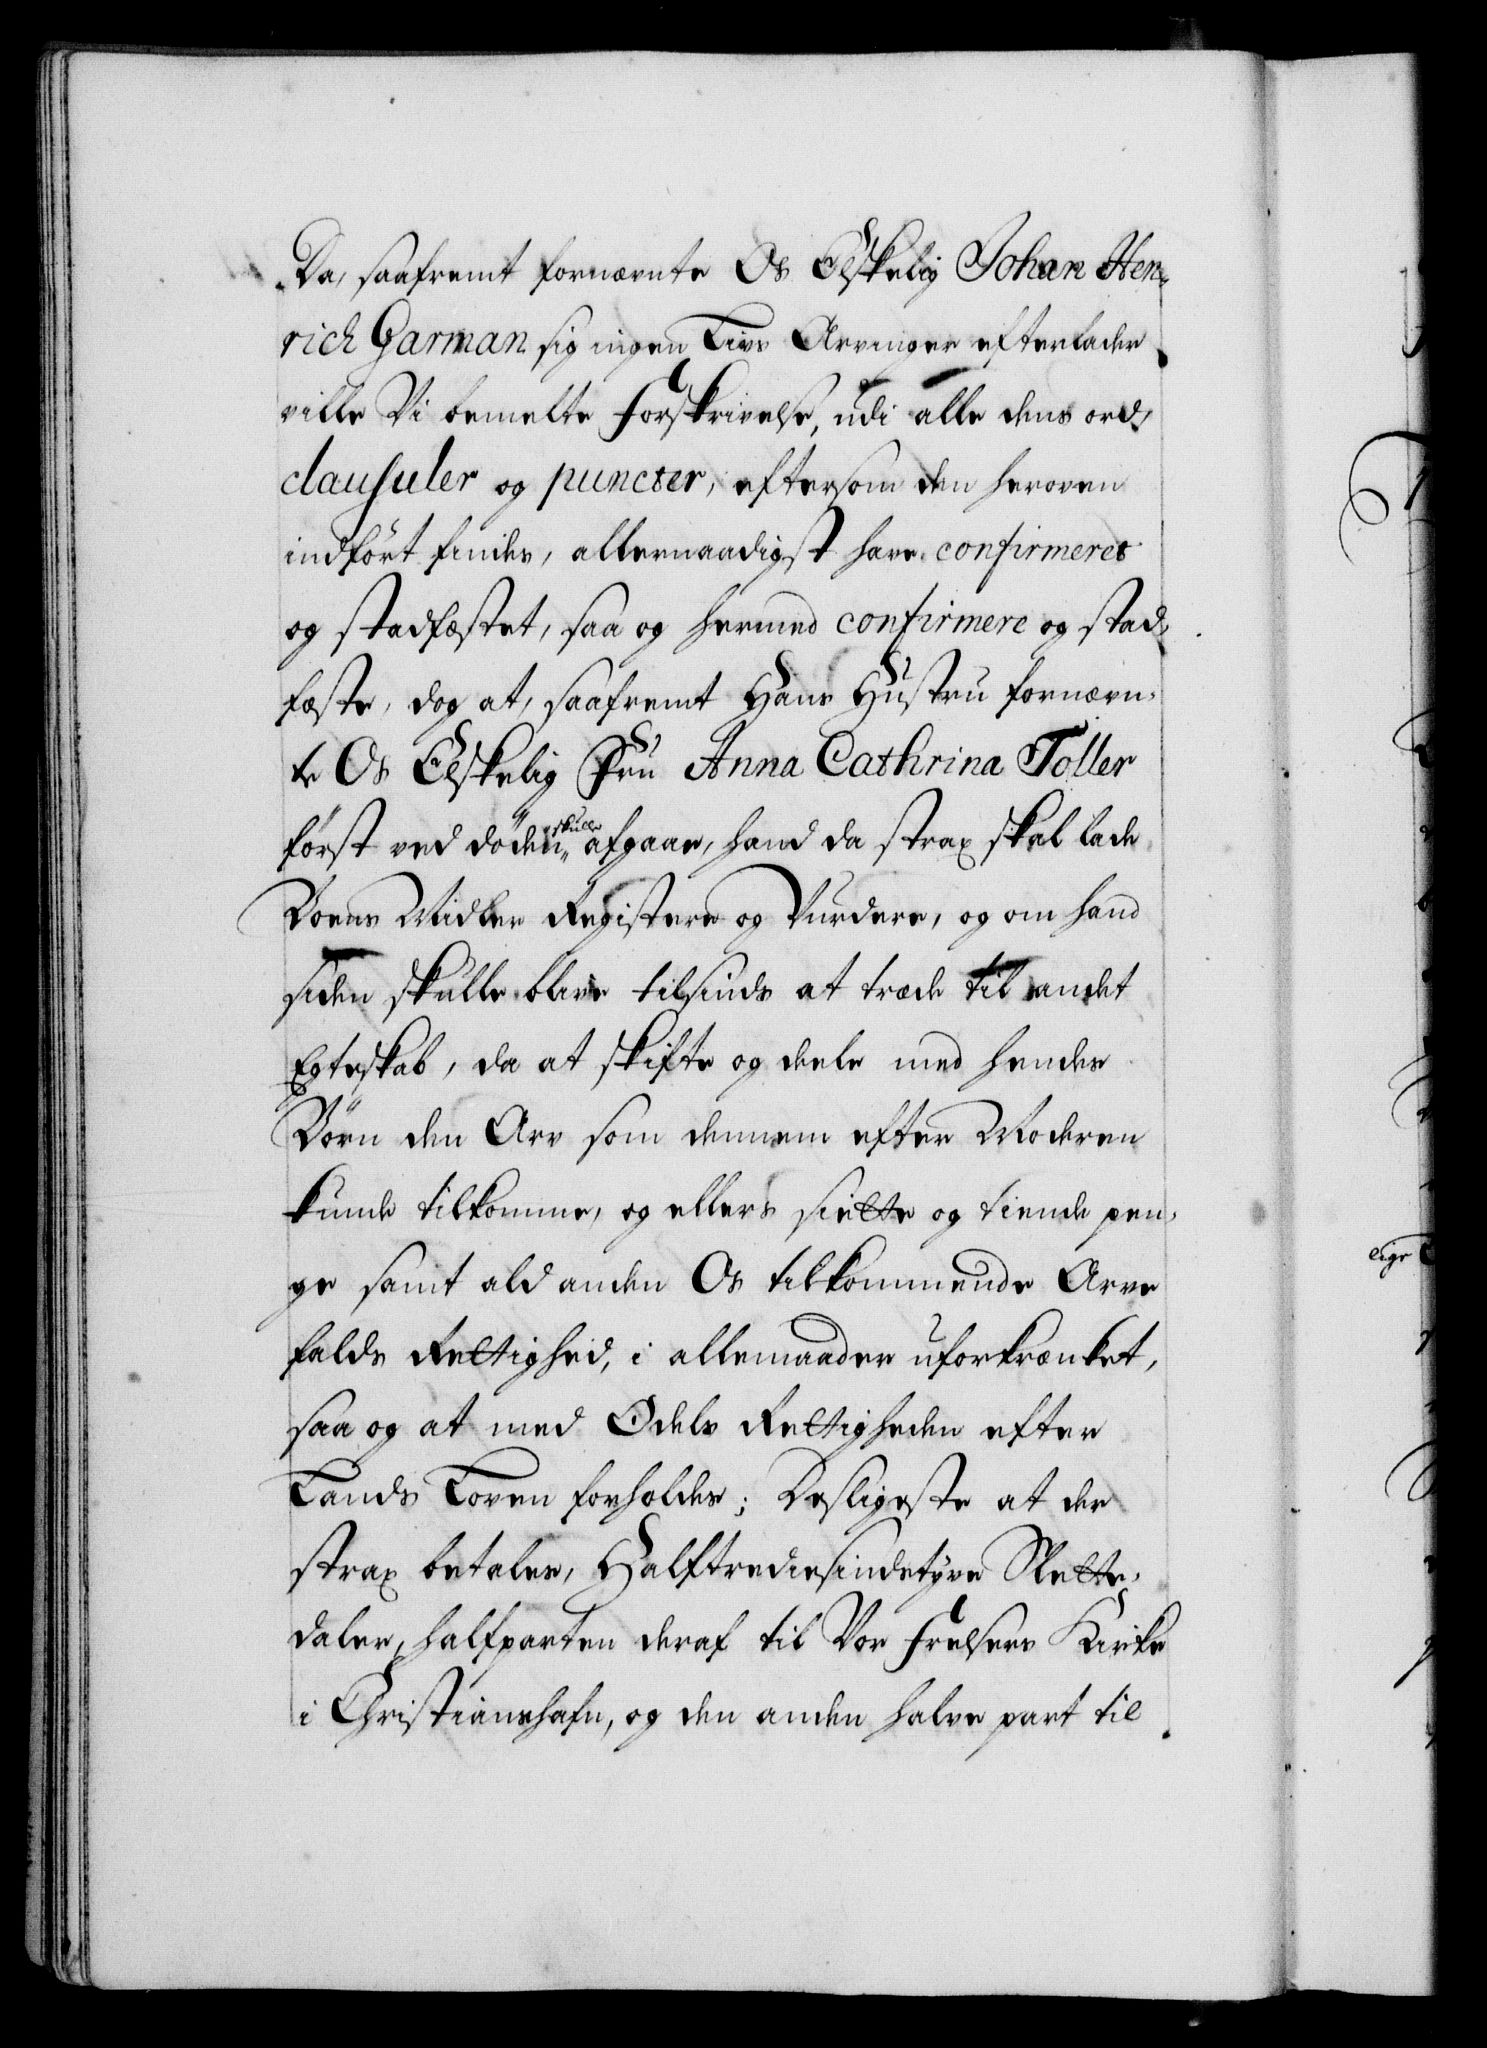 Da, saafremt fornævnte Os Elskelig Johan Hen-
rich Garman sig ingen Livs Arvinger efterlader
ville Vi bemelte Forskrivelse, udi alle dens ord,
clausuler og puncter, eftersom den heroven
indført findes, allernaadigst have confirmeret
og stadfæstet, saa og hermed confirmere og stad-
fæste, dog at, saafremt Hans Hustru fornævn-
te Os Elskelig Fru Anna Cathrina Toller
først ved døden skulle afgaae, hand da strax skal lade
Boens Midler Registere og Vurdere, og om hand
siden skulle blive tilsinds at træde til andet
Egteskab, da at skifte og deele med hendes
Börn den Arv som dennem efter Moderen
kunde tilkomme, og ellers siette og tiende pen-
ge samt ald anden Os tilkommende Arve
falds Rettighed, i allemaader uforkrænket,
saa og at med Odels Rettigheden efter
Lands Loven forholdes; Desligeste at der
strax betales, Halftrediesindetyve Slette-
daler, halfparten deraf til Vor Frelsers Kirke
i Christianshafn, og den anden halve part til
lige